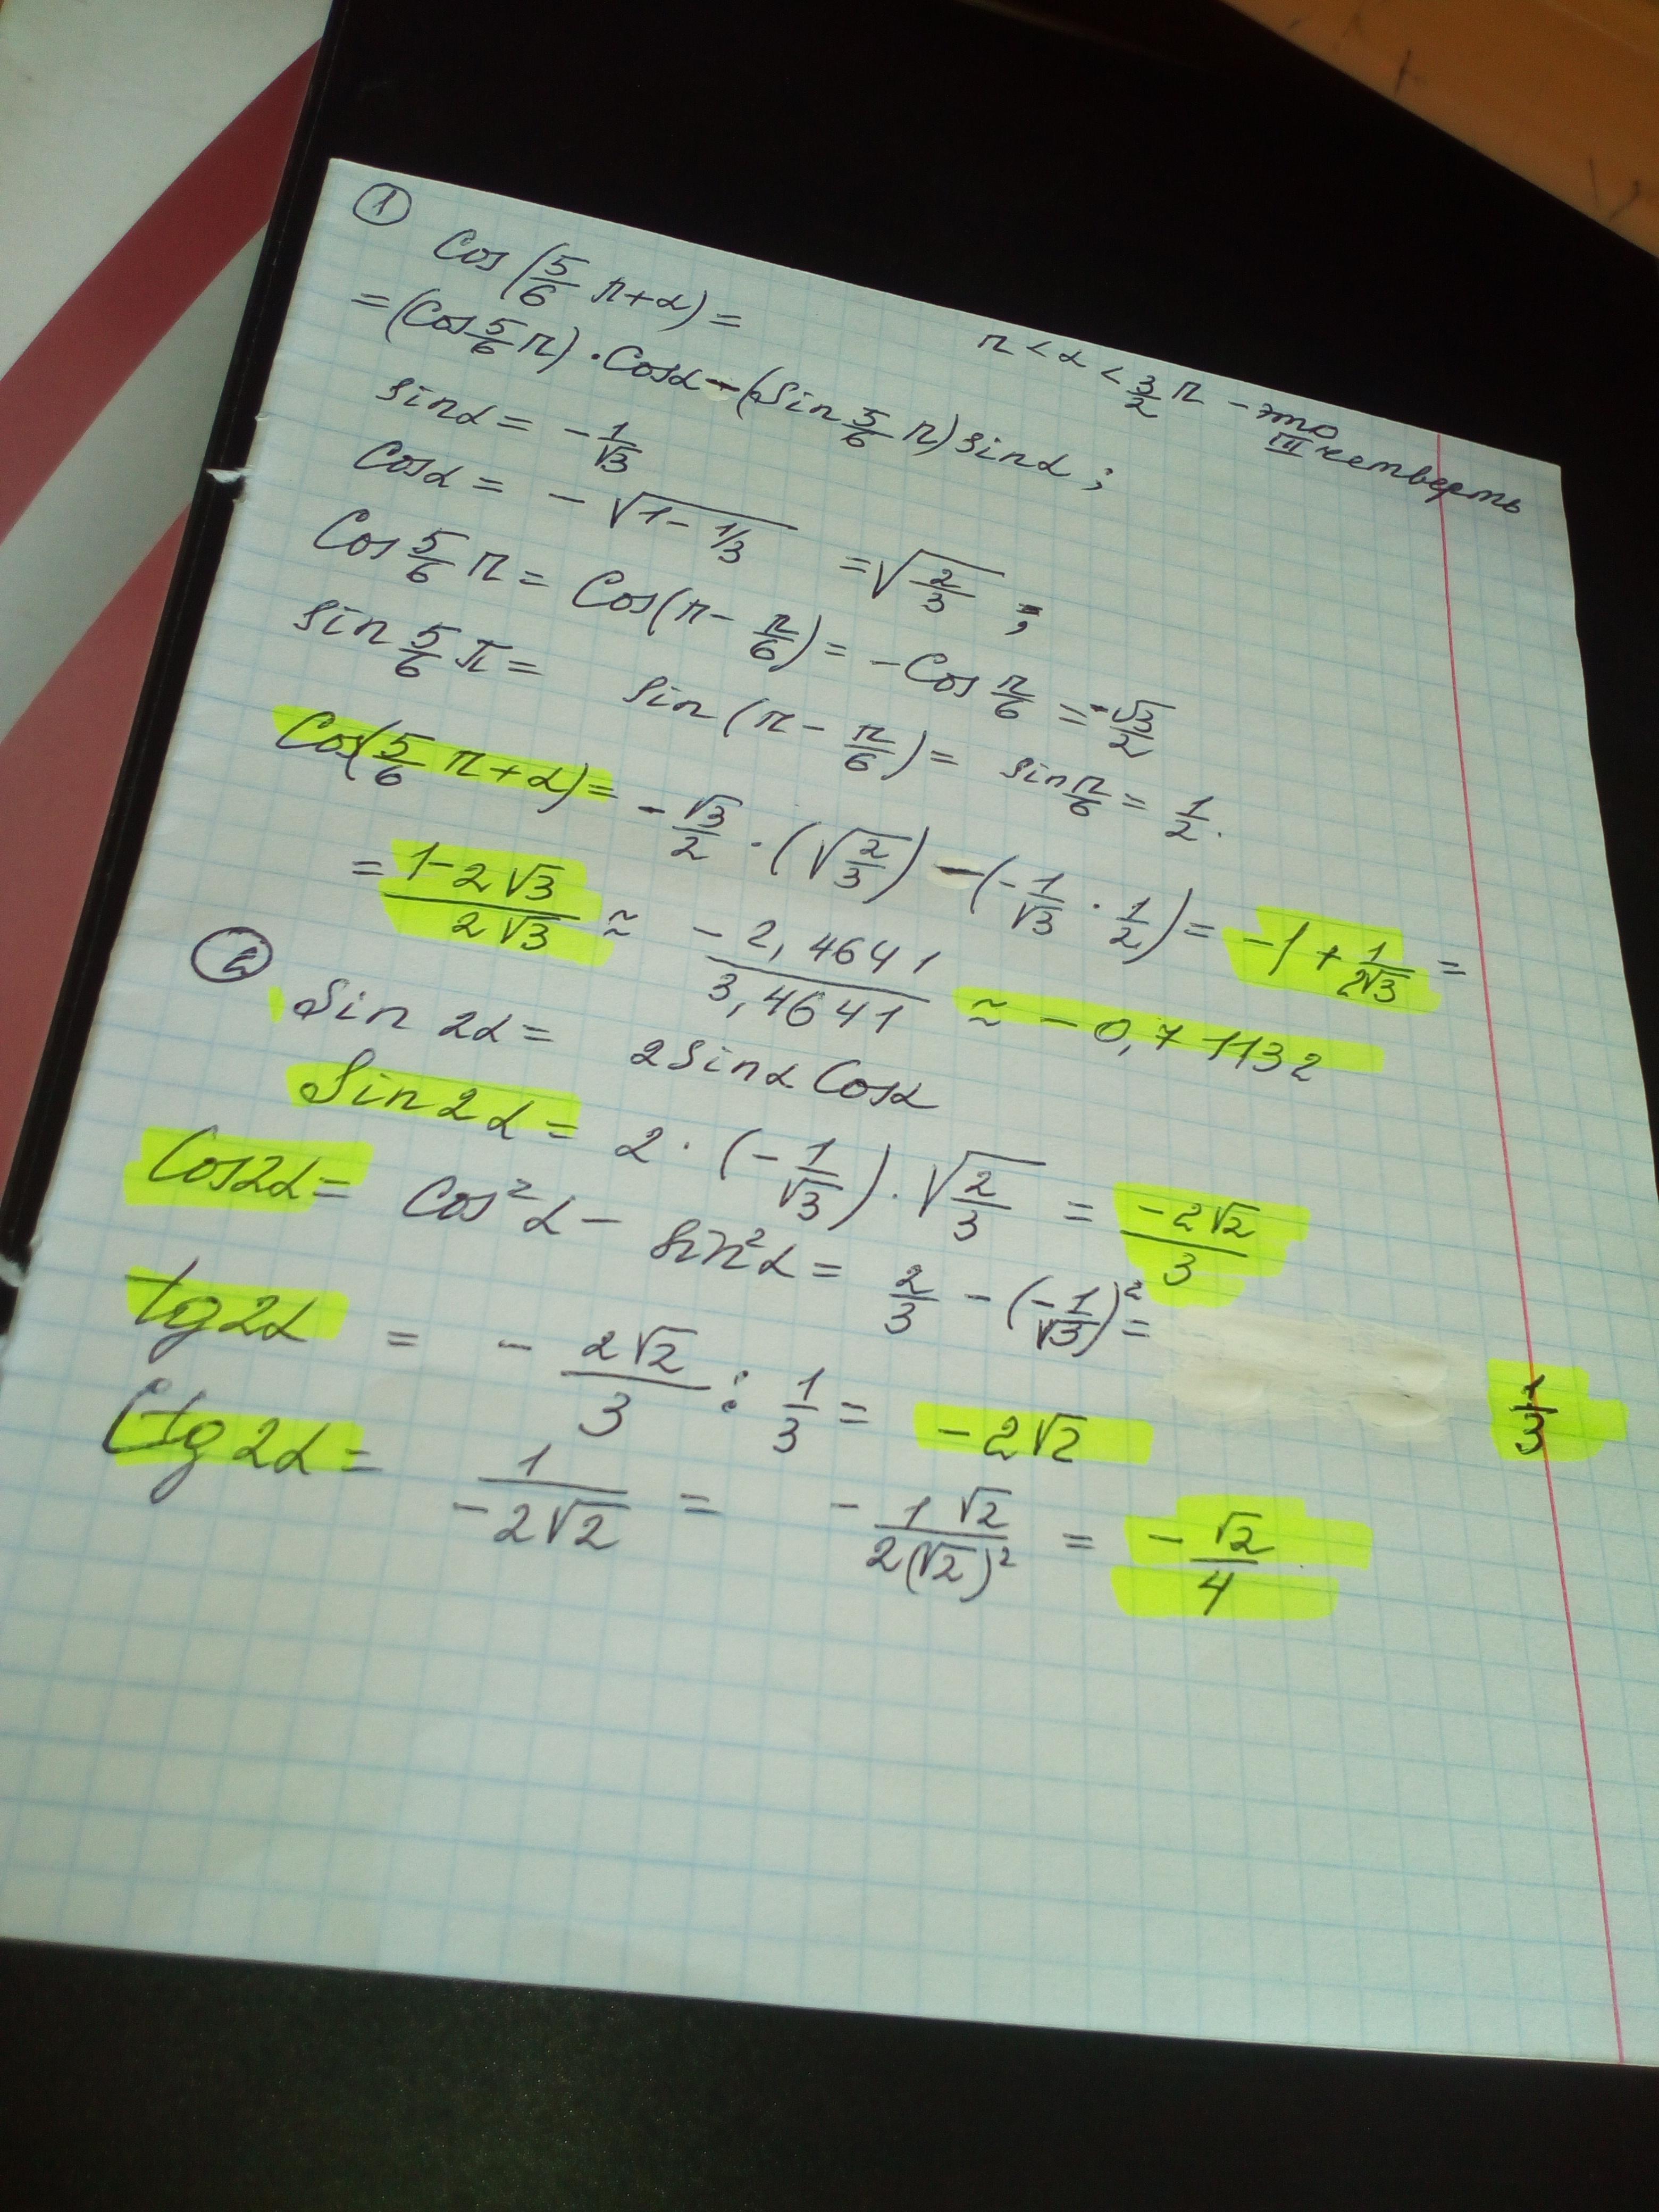 ①
Cos(5/6 π+α) =
π < α < 3/2 π - это III четверть
= (Cos 5/6 π) · Cosα - (Sin 5/6 π) sinα ;
sinα = - 1/√3
Cosα = - √(1 - 1/3) = √(2/3) ;
Cos 5/6 π = Cos(π - π/6) = - Cos π/6 = - √3/2
sin 5/6 π = sin (π - π/6) = sin π/6 = 1/2.
Cos(5/6 π+α) = - √3/2 · (√(2/3)) - (- 1/√3 · 1/2) = -1 + 1/2√3 =
= (1-2√3)/(2√3) ≈ (-2,4641)/(3,4641) ≈ - 0,71132
②
Sin 2α = 2 Sinα Cosα
Sin 2α = 2 · (- 1/√3) · √(2/3) = (-2√2)/3
Cos2α = Cos²α - Sin²α = 2/3 - (-1/√3)² = 1/3
tg 2α = - (2√2)/3 : 1/3 = -2√2
Ctg 2α = 1/(-2√2) = - (1 √2)/(2(√2)²) = - √2/4